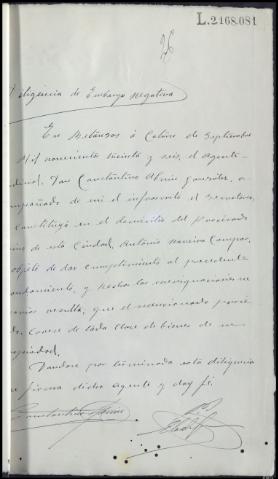 L.2168.081
26
Diligencia de Embargo Negativa
En Betanzos á Catorce de Septiembre
Mil novecientos treinta y seis, el Agente
Don Constantino González,
acompañado de mi el infrascrito el Secretario,
constituyó en el domicilio del
de esta Ciudad, Antonio Naveira Campos,
objeto de dar cumplimiento al precedente
mandamiento, y hechas las averiguaciones
resulta, que el mencionado
Carece de toda clase de bienes de su
propiedad.
Dándose por terminada esta diligencia
firma dicho Agente y doy fé.
Constantino